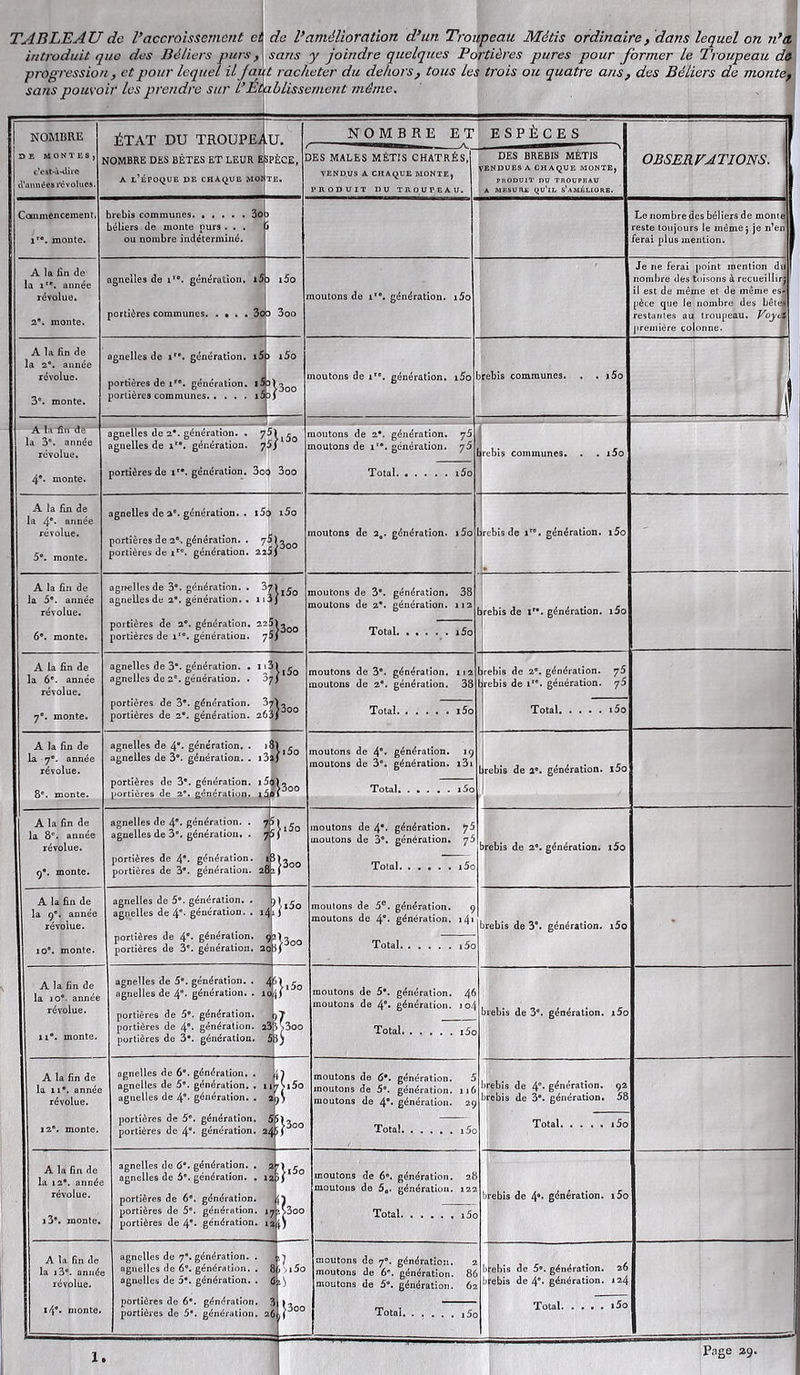 TABLEAU de l'accroissement et de l'amélioration d'un Troupeau Métis ordinaire, dans lequel on n'a
introduit que des Béliers purs, sans y joindre quelques Portières pures pour former le Troupeau de
progression, et pour lequel il faut racheter du dehors, tous les trois ou quatre ans, des Béliers de monte,
sans pouvoir les prendre sur l'Établissement même.
NOMBRE
DE MONTES,
c'est-à-dire
d'années révolues.
ÉTAT DU TROUPEAU.
NOMBRE DES BÊTES ET LEUR ESPÈCE,
A L'ÉPOQUE DE CHAQUE MONTE.
NOMBRE ET ESPÈCES
DES MALES MÉTIS CHATRÉS,
VENDUS A CHAQUE MONTE,
PRODUIT DU TROUPEAU.
DES BREBIS MÉTIS
VENDUES A CHAQUE MONTE,
PRODUIT DU TROUPEAU
A MESURE QU'IL S'AMÉLIORE.
OBSERVATIONS.
Commencement,
1re. monte.
brebis communes. . . . . . 300
béliers de monte purs . . . 6
ou nombre indéterminé.
Le nombre des béliers de monte
reste toujours le même; je n'en
ferai plus mention.
A la fin de
la 1re. année
révolue.
2e. monte.
agnelles de 1re. génération. 150 150
portières communes. . . . . 300 300
moutons de 1re. génération. 150
Je ne ferai point mention du
nombre des toisons à recueillir;
il est de même et de même es-
pèce que le nombre des bêtes
restantes au troupeau. Voyez
première colonne.
A la fin de
la 2e. année
révolue.
3e. monte.
agnelles de 1re. génération. 150 150
portières de 1re. génération. 150 } 300
portières communes. . . . . 150
moutons de 1re. génération. 150
brebis communes. . . 150
A la fin de
la 3e. année
révolue.
4e. monte.
agnelles de 2e. génération. . 75 } 150
agnelles de 1re. génération. 75
portières de 1re. génération. 300 300
moutons de 2e. génération. 75
moutons de 1re. génération. 75
Total. . . . . . 150
brebis communes. . . 150
A la fin de
la 4e. année
révolue.
5e. monte.
agnelles de 2e. génération. . 150 150
portières de 2e. génération. . 75 } 300
portières de 1re. génération. 225
moutons de 2e. génération. 150
brebis de 1re. génération. 150
A la fin de
la 5e. année
révolue.
6e. monte.
agnelles de 3e. génération. . 37 } 150
agnelles de 2e. génération. . 113
portières de 2e. génération. 225 } 300
portières de 1re. génération. 75
moutons de 3e. génération. 38
moutons de 2e. génération. 112
Total. . . . . . 150
brebis de 1re. génération. 150
A la fin de
la 6e. année
révolue.
7e. monte.
agnelles de 3e. génération. . 113 } 150
agnelles de 2e. génération. . 37
portières de 3e. génération. 37 } 300
portières de 2e. génération. 263
moutons de 3e. génération. 112
moutons de 2e. génération. 38
Total. . . . . . 150
brebis de 2e. génération. 75
brebis de 1re. génération. 75
Total. . . . . 150
A la fin de
la 7e. année
révolue.
8e. monte.
agnelles de 4e. génération. . 18 } 150
agnelles de 3e. génération. . 132
portières de 3e. génération. 150 } 300
portières de 2e. génération. 150
moutons de 4e. génération. 19
moutons de 3e. génération. 131
Total. . . . . . 150
brebis de 2e. génération. 150
A la fin de
la 8e. année
révolue.
9e. monte.
agnelles de 4e. génération. . 75 } 150
agnelles de 3e. génération. . 75
portières de 4e. génération. 18 } 300
portières de 3e. génération. 282
moutons de 4e. génération. 75
moutons de 3e. génération. 75
Total. . . . . . 150
brebis de 2e. génération. 150
A la fin de
la 9e. année
révolue.
10e. monte.
agnelles de 5e. génération. . 9 } 150
agnelles de 4e. génération. . 141
portières de 4e. génération. 92 } 300
portières de 3e. génération. 208
moutons de 5e. génération. 9
moutons de 4e. génération. 141
Total. . . . . . 150
brebis de 3e. génération. 150
A la fin de
la 10e. année
révolue.
11e. monte.
agnelles de 5e. génération. . 46 } 150
agnelles de 4e. génération. . 104
portières de 5e. génération. 9
portières de 4e. génération. 233 } 300
portières de 3e. génération. 58
moutons de 5e. génération. 46
moutons de 4e. génération. 104
Total. . . . . . 150
brebis de 3e. génération. 150
A la fin de
la 11e. année
révolue.
12e. monte.
agnelles de 6e. génération. . 4
agnelles de 5e. génération. . 117 } 150
agnelles de 4e. génération. . 29
portières de 5e. génération. 55 } 300
portières de 4e. génération. 245
moutons de 6e. génération. 5
moutons de 5e. génération. 116
moutons de 4e. génération. 29
Total. . . . . . 150
brebis de 4e. génération. 92
brebis de 3e. génération. 58
Total. . . . . 150
A la fin de
la 12e. année
révolue.
13e. monte.
agnelles de 6e. génération. . 27 } 150
agnelles de 5e. génération. . 123
portières de 6e. génération. 4
portières de 5e. génération. 172 } 300
portières de 4e. génération. 124
moutons de 6e. génération. 28
moutons de 5e. génération. 122
Total. . . . . . 150
brebis de 4e. génération. 150
A la fin de
la 13e. année
révolue.
14e. monte.
agnelles de 7e. génération. . 2
agnelles de 6e. génération. . 86 } 150
agnelles de 5e. génération. . 62
portières de 6e. génération. 31 } 300
portières de 5e. génération. 269
moutons de 7e. génération. 2
moutons de 6e. génération. 86
moutons de 5e. génération. 62
Total. . . . . . 150
brebis de 5e. génération. 26
brebis de 4e. génération. 124
Total. . . . . 150
1.
Page 29.